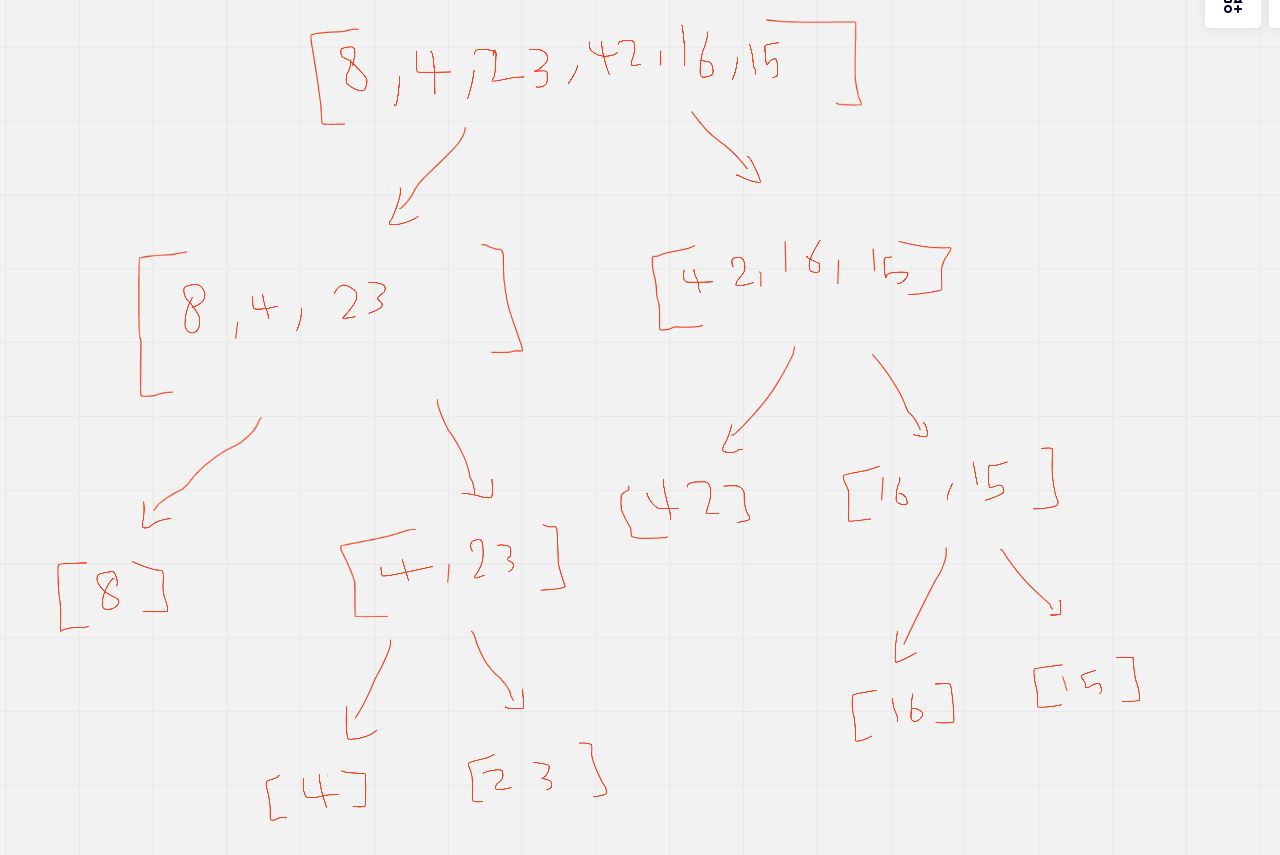 [8, 4, 23, 42, 16, 15]
[8, 4, 23]
[42, 16, 15]
[8]
[4, 23]
[42]
[16, 15]
[4]
[23]
[16]
[15]